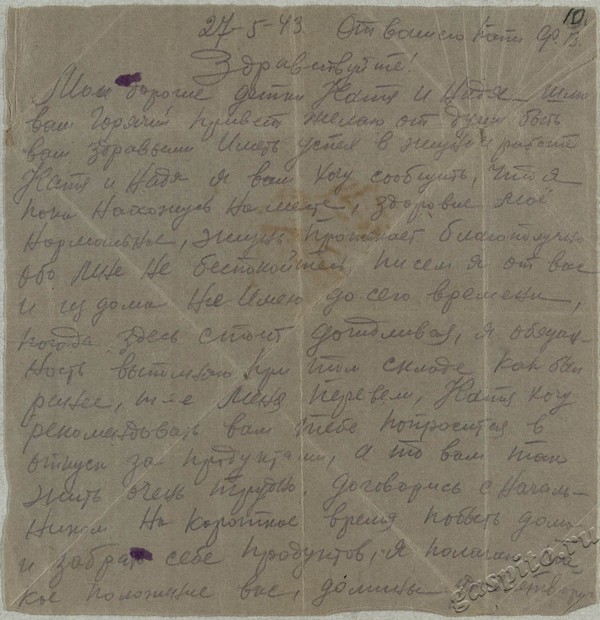 10.
27-5-43. От вашего папи ФВ.
Здравствуйте!
Мои дорогие детки Катя и Надя шлю
вам горячий привет желаю от души быть
вам здравыми иметь успех в жизни и работе
Катя и Надя я вам хочу сообщить, что я
пока нахожусь на месте, здоровье моё
нармольное, жизнь протекает благополучно
обо мне не беспокойтесь, писем я от вас
и из дома не имею до сего времени,
погода здесь стоит дождливая, я обязан-
ность выполняю при том складе как был
ранее, меня перевели, Катя хочу
рекомендовать вам тебе попросится в
отпуск за продуктами, а то вам там
жить очень трудно, договорись с началь-
ником на короткое время побыть дома
и забрать себе продуктов, я полагаю
кое положение вас, должны
gaspito.ru